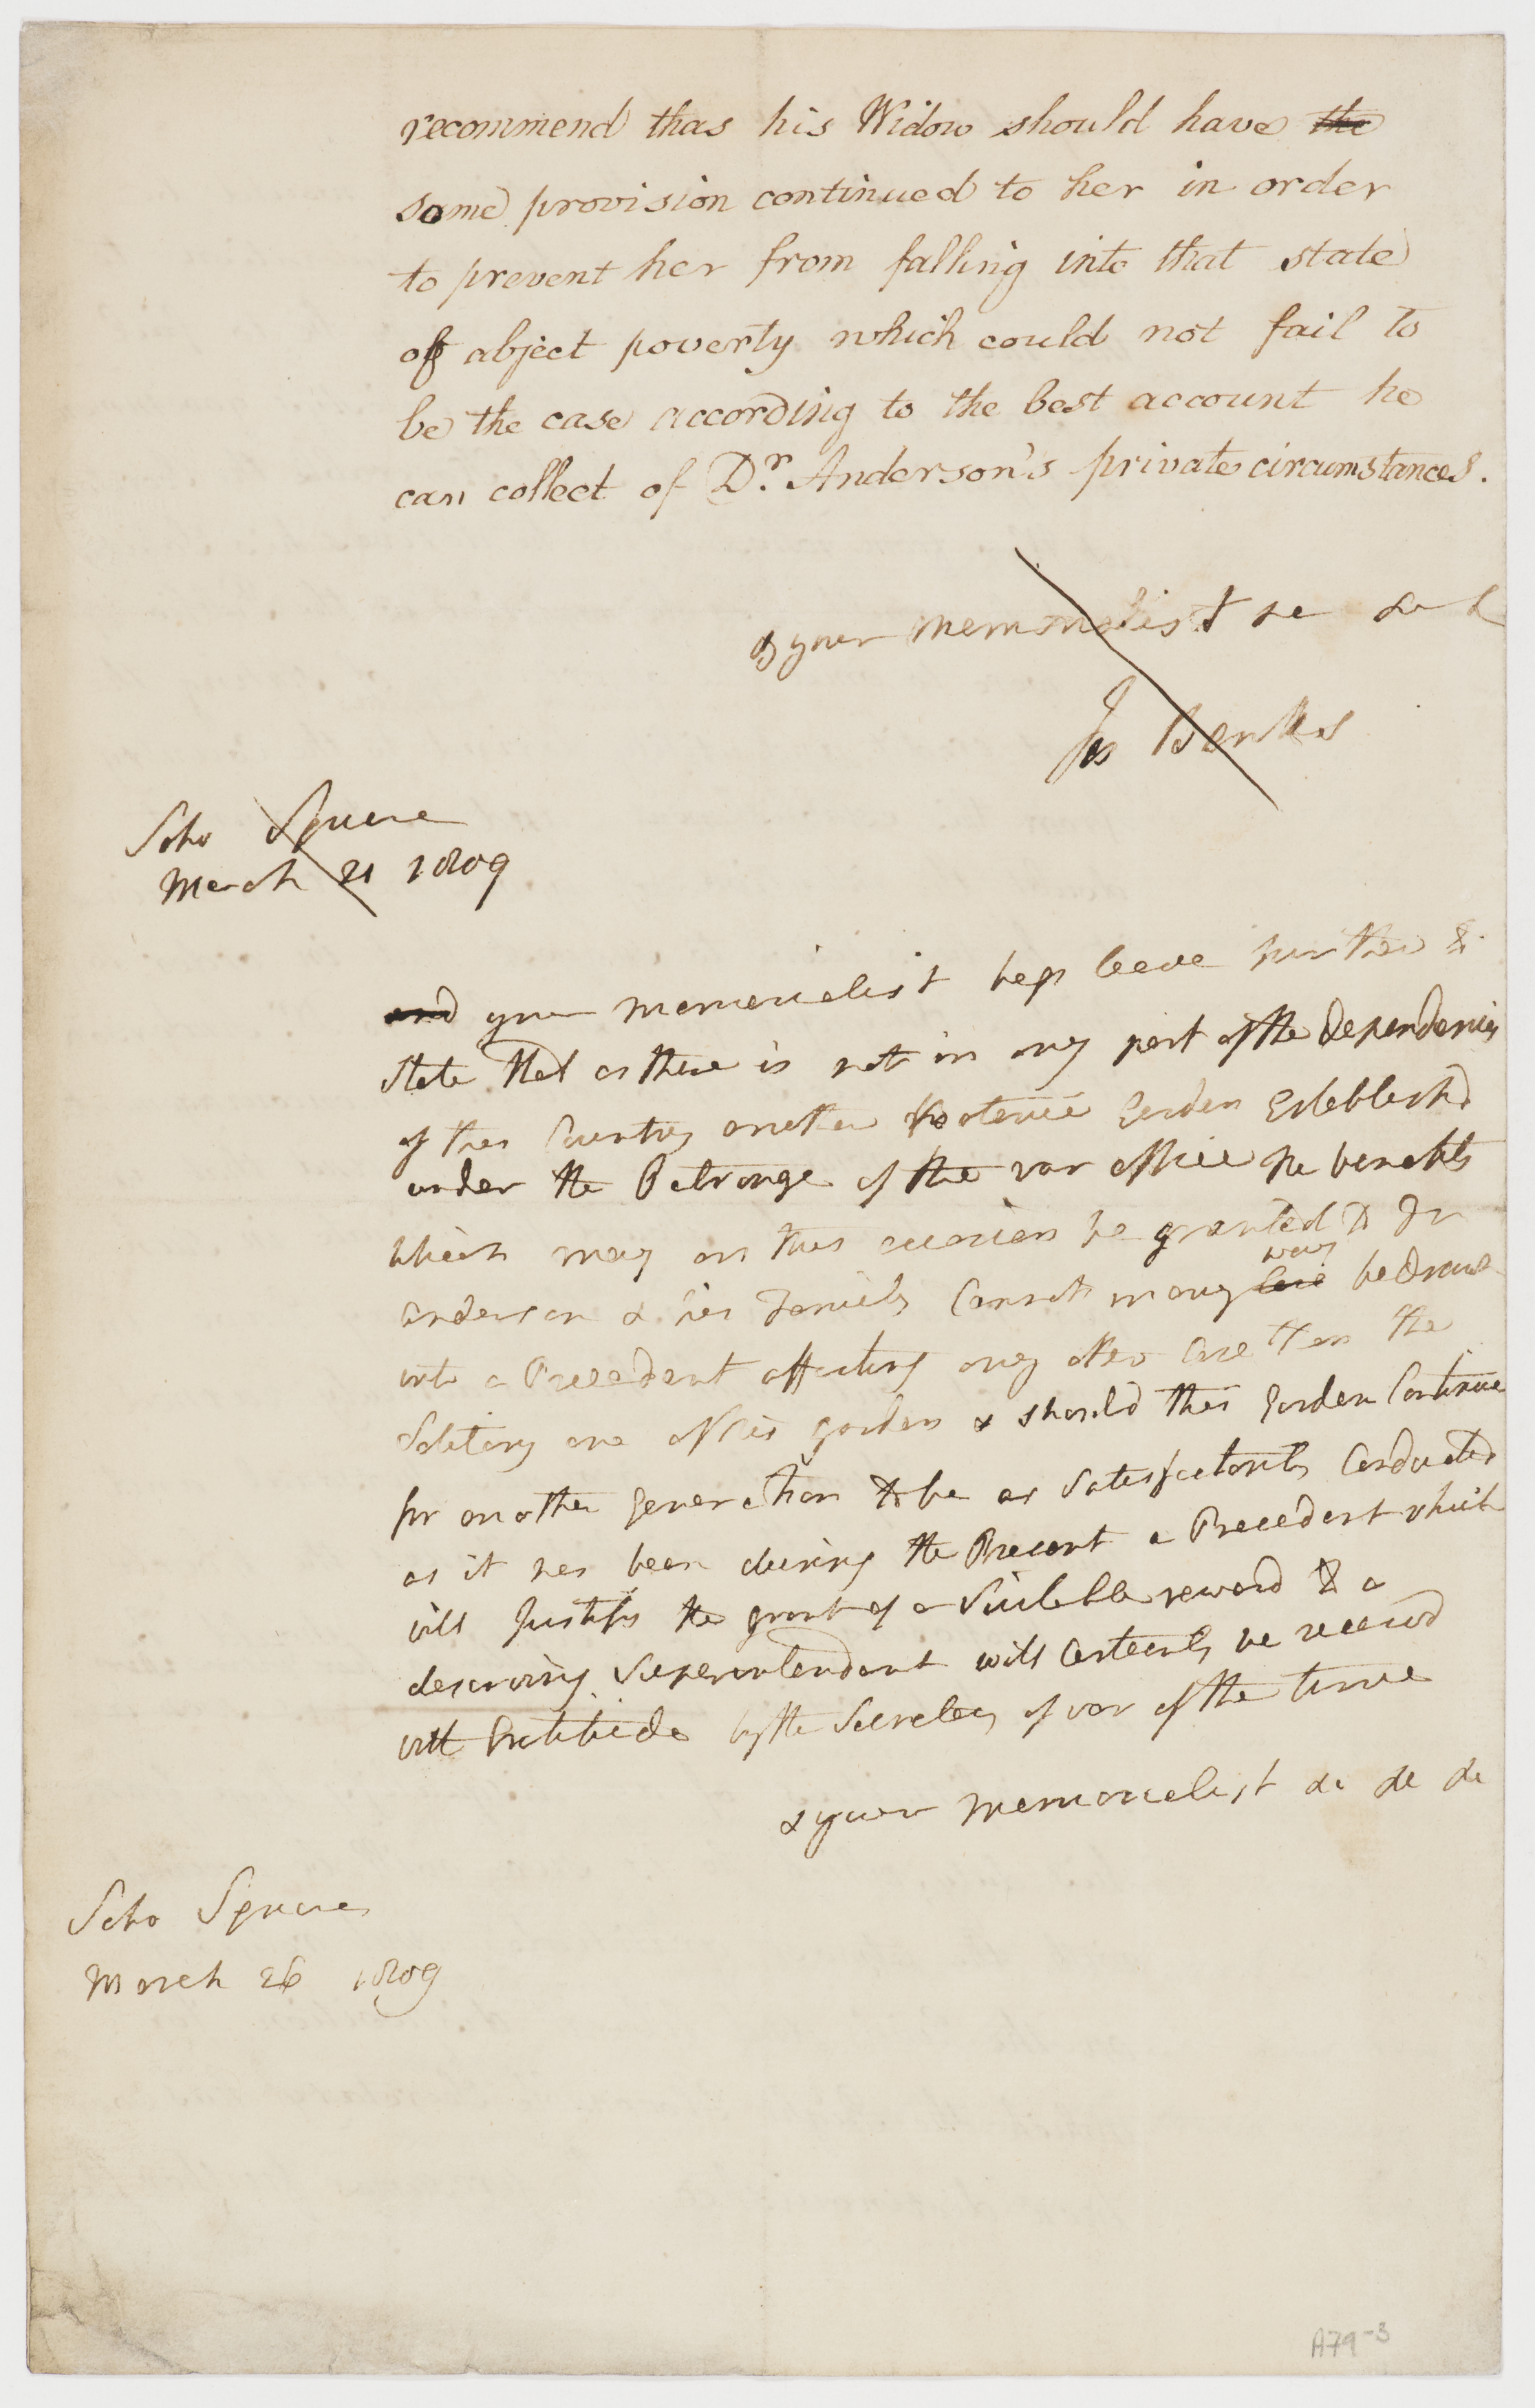 recommend thas his Widow should have the
some provision continued to her in order
to prevent her from falling into that state
of abject poverty which could not fail to
be the case according to the best account he
can collect of Dr. Anderson's private circumstances.
& your memorialist &c &c &
Jos Banks
Soho Square
March 21 1809
and your memorialist begs leave further to
state that as there is not in any part of the dependencies
of this Country another Botanic Garden Establishd
under the Patronage of the war office the benefits
which may on this occasion be granted to Dr
Anderson & his Family Cannot in any
way
case be drawn
into a Precedent affecting any other Case than the
Solitary one of this garden & should this Garden Continue
for another Generation to be as Satisfactorily Conducted
as it has been during the Present a Precedent which
will Justify the grant of a Suitable reward to a
deserving Superintendant will Certainly be receivd
with Gratitude by the Secretary of war of the time
& your memorialist &c &c &c
Soho Square
March 26 1809
A79-3